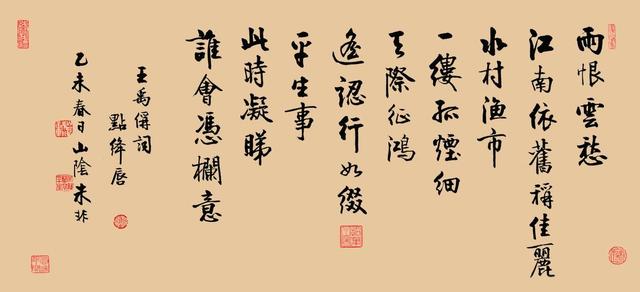 雨恨雲愁
江南依舊稱佳麗
水村渔市
一缕孤煙细
天際征鴻
遙認行如缀
平生事
此時凝睇
誰會憑欄意
王禹偁詞
點绛唇
乙未春日山陰朱非